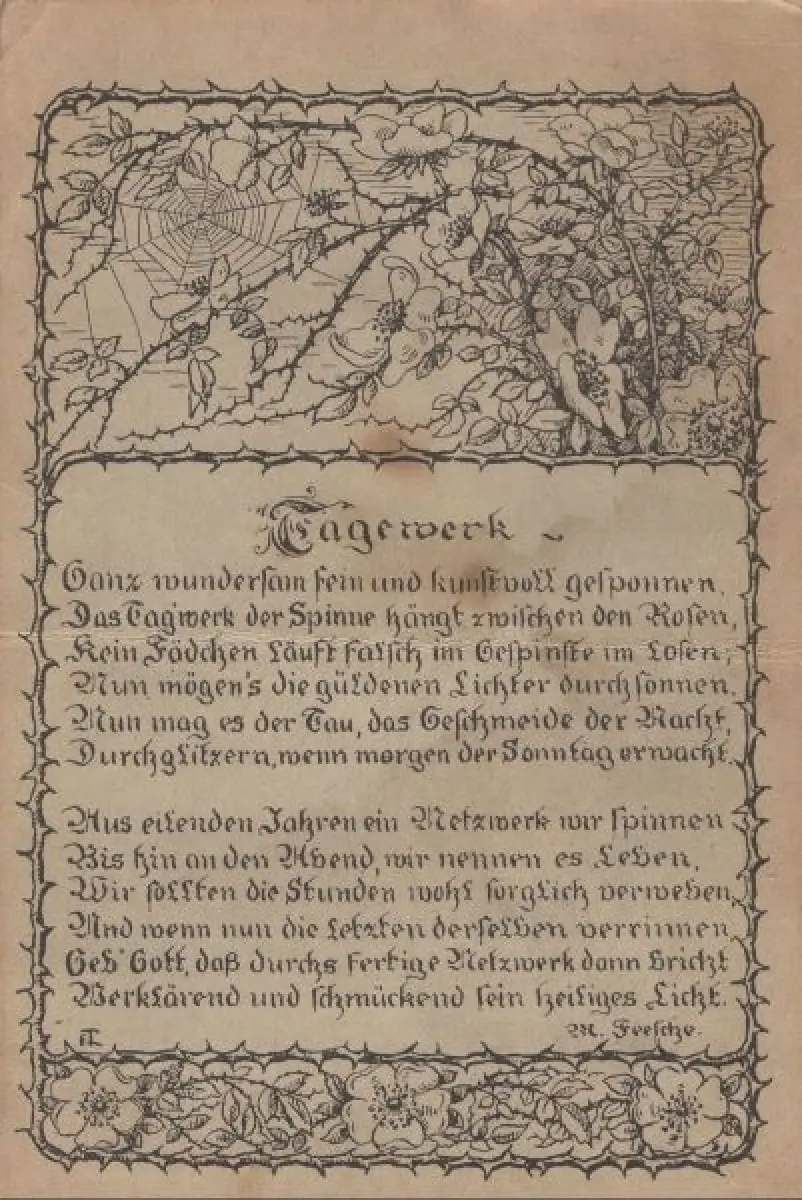 Tagewerk
Ganz wundersam fein und kunstvoll gesponnen,
Das Tagwerk der Spinne hängt zwischen den Rosen,
Kein Fädchen läuft falsch im Gespinste im losen;
Nun mögen's die güldenen Lichter durchsonnen.
Nun mag es der Tau, das Geschmeide der Nacht,
Durchglitzern, wenn morgen der Sonntag erwacht.
Aus eilenden Jahren ein Netzwerk wir spinnen
Bis hin an den Abend, wir nennen es Leben,
Wir sollten die Stunden wohl sorglich verweben,
Und wenn nun die letzten derselben verrinnen,
Geb' Gott, daß durchs fertige Netzwerk dann bricht
Verklärend und schmückend sein heiliges Licht.
M. Feesche.